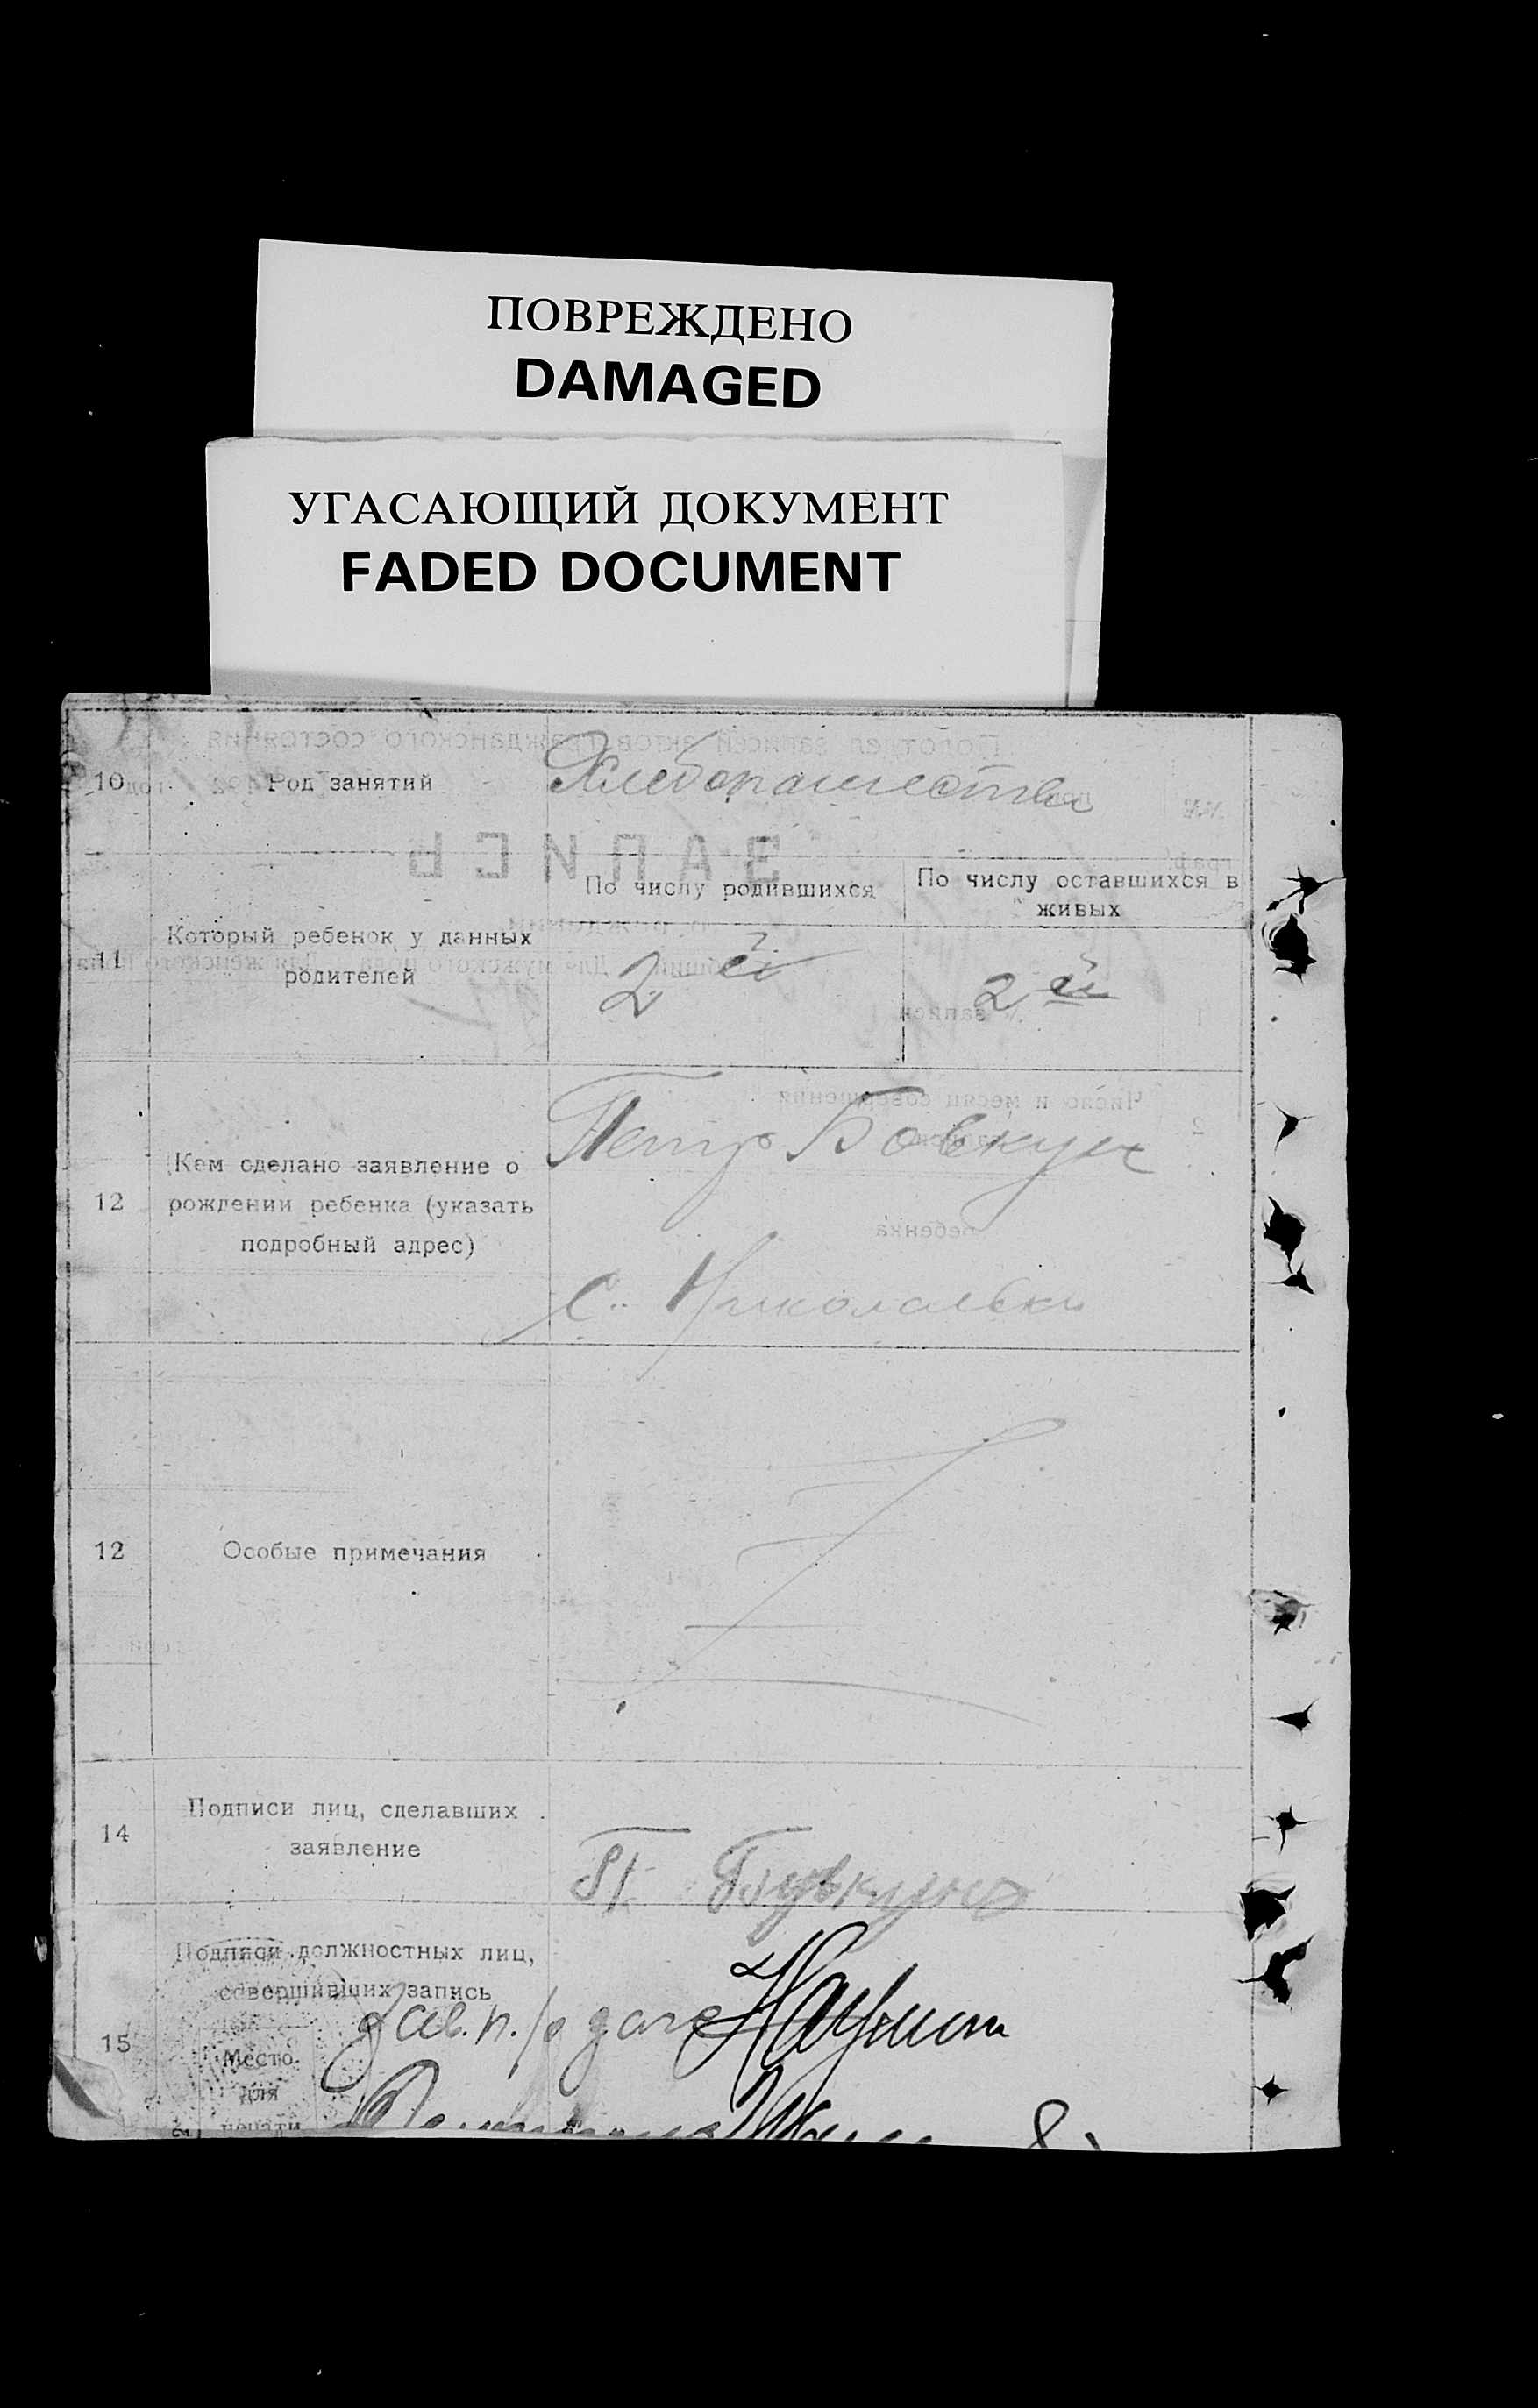 ПОВРЕЖДЕНО
DAMAGED
УГАСАЮЩИЙ ДОКУМЕНТ
FADED DOCUMENT
10 Род занятий Хлебопашество
11 Который ребенок у данных родителей
По числу родившихся
По числу оставшихся в
живых
2 й
2 й
12 Кем сделано заявление о
рождении ребенка (указать
подробный адрес)
Петр Бовкун
с. Николаевка
12 Особые примечания
14 Подписи лиц, сделавших
заявление
П Бувкун
15 Подписи должностных лиц,
совершивших запись
Зав. п.
Место
для
печати